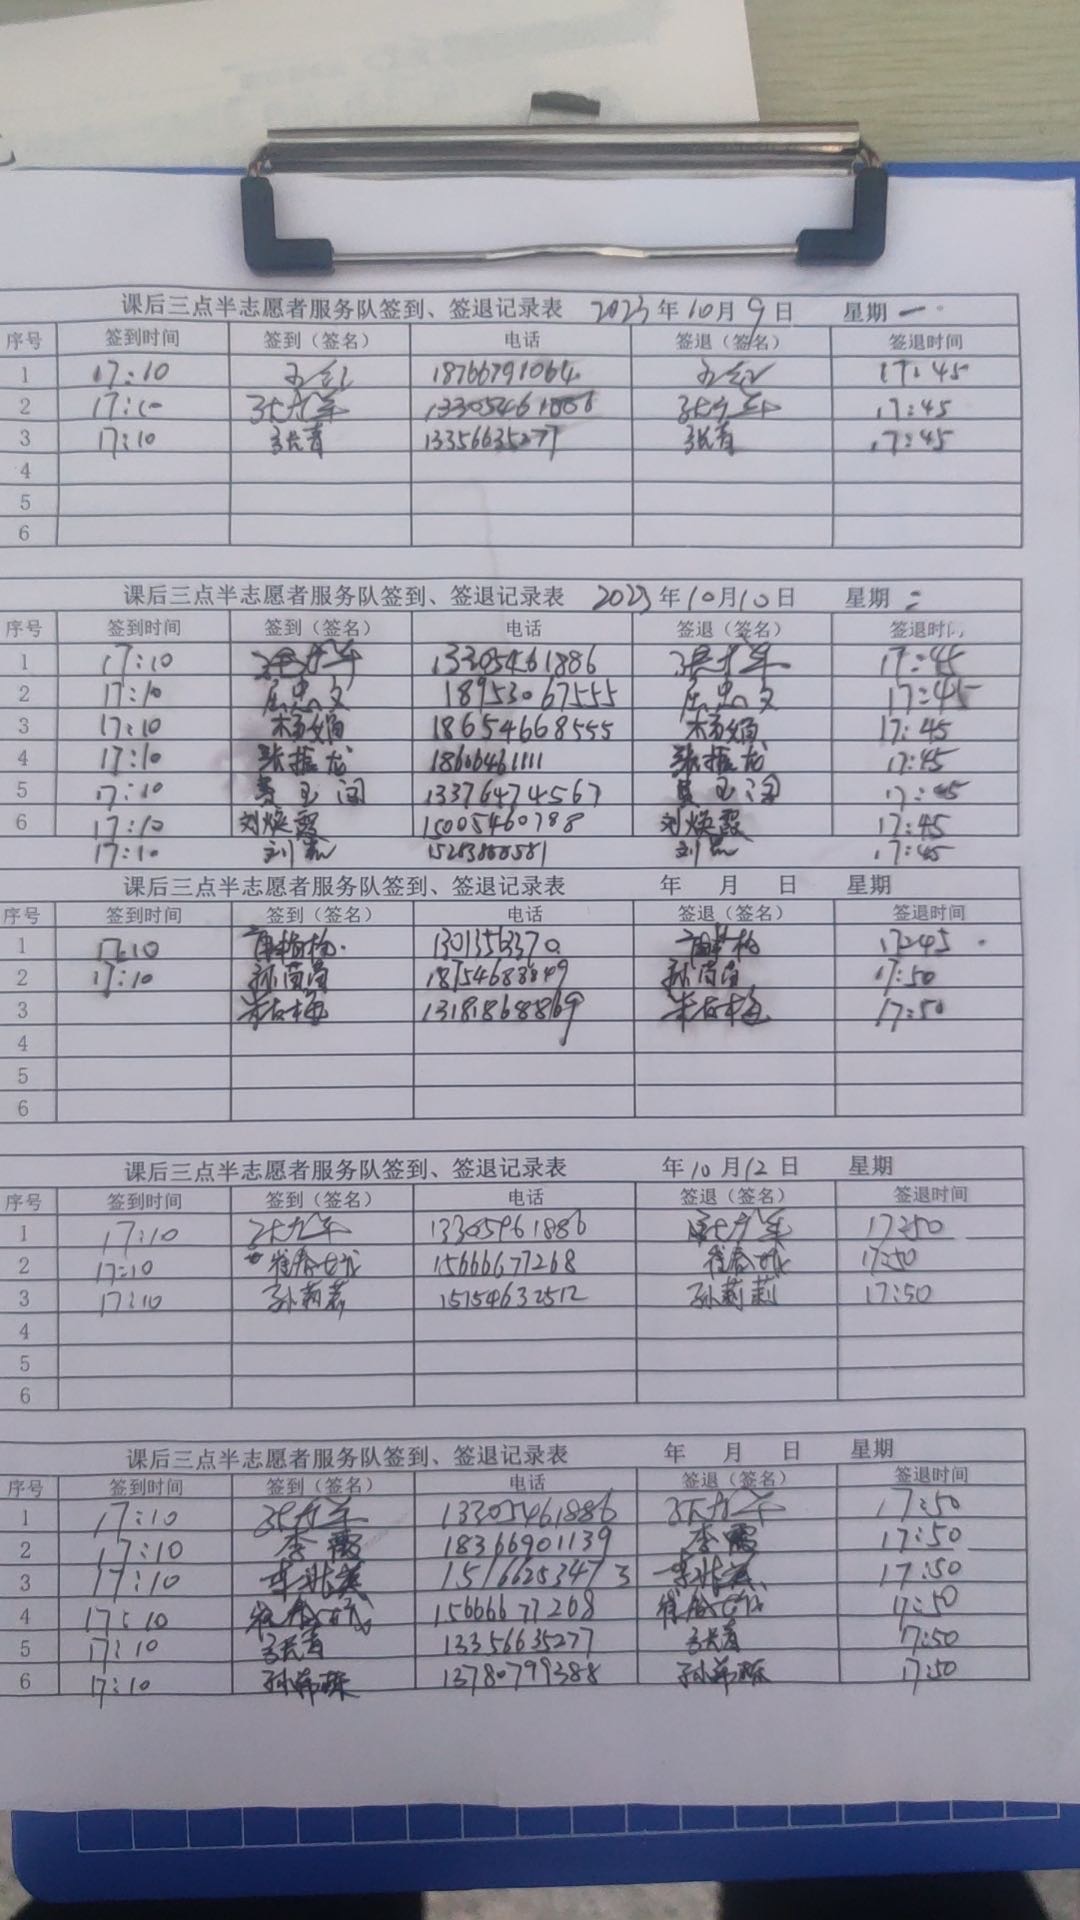 课后三点半志愿者服务队签到、签退记录表 2023年10月9日 星期一
序号 签到时间 签到（签名） 电话 签退（签名） 签退时间
1 17:10 18766791064 17:45
2 17:10 13305461886 17:45
3 17:10 张长青 13356635277 张长青 17:45
4
5
6
课后三点半志愿者服务队签到、签退记录表 2023年10月10日 星期二
序号 签到时间 签到（签名） 电话 签退（签名） 签退时间
1 17:10 13305461886 17:45
2 17:10 18953067555 17:45
3 17:10 杨娟 18654668555 杨娟 17:45
4 17:10 张振龙 18606461111 张振龙 17:45
5 17:10 13376474567 17:45
6 17:10 刘焕霞 15005460788 刘焕霞 17:45
17:10 刘磊 17:45
课后三点半志愿者服务队签到、签退记录表 年 月 日 星期
序号 签到时间 签到（签名） 电话 签退（签名） 签退时间
1 17:10 17:45
2 17:10 18754688849 17:50
3 13181868869 17:50
4
5
6
课后三点半志愿者服务队签到、签退记录表 年10月12日 星期
序号 签到时间 签到（签名） 电话 签退（签名） 签退时间
1 17:10 17:50
2 17:10 15666677268 17:50
3 17:10 孙莉莉 15154632512 孙莉莉 17:50
4
5
6
课后三点半志愿者服务队签到、签退记录表 年 月 日 星期
序号 签到时间 签到（签名） 电话 签退（签名） 签退时间
1 17:10 13305461886 17:50
2 17:10 李霞 18366901139 李霞 17:50
3 17:10 15166253473 17:50
4 17:10 15666677268 17:50
5 17:10 张长青 13356635277 张长青 17:50
6 17:10 13780799388 17:50